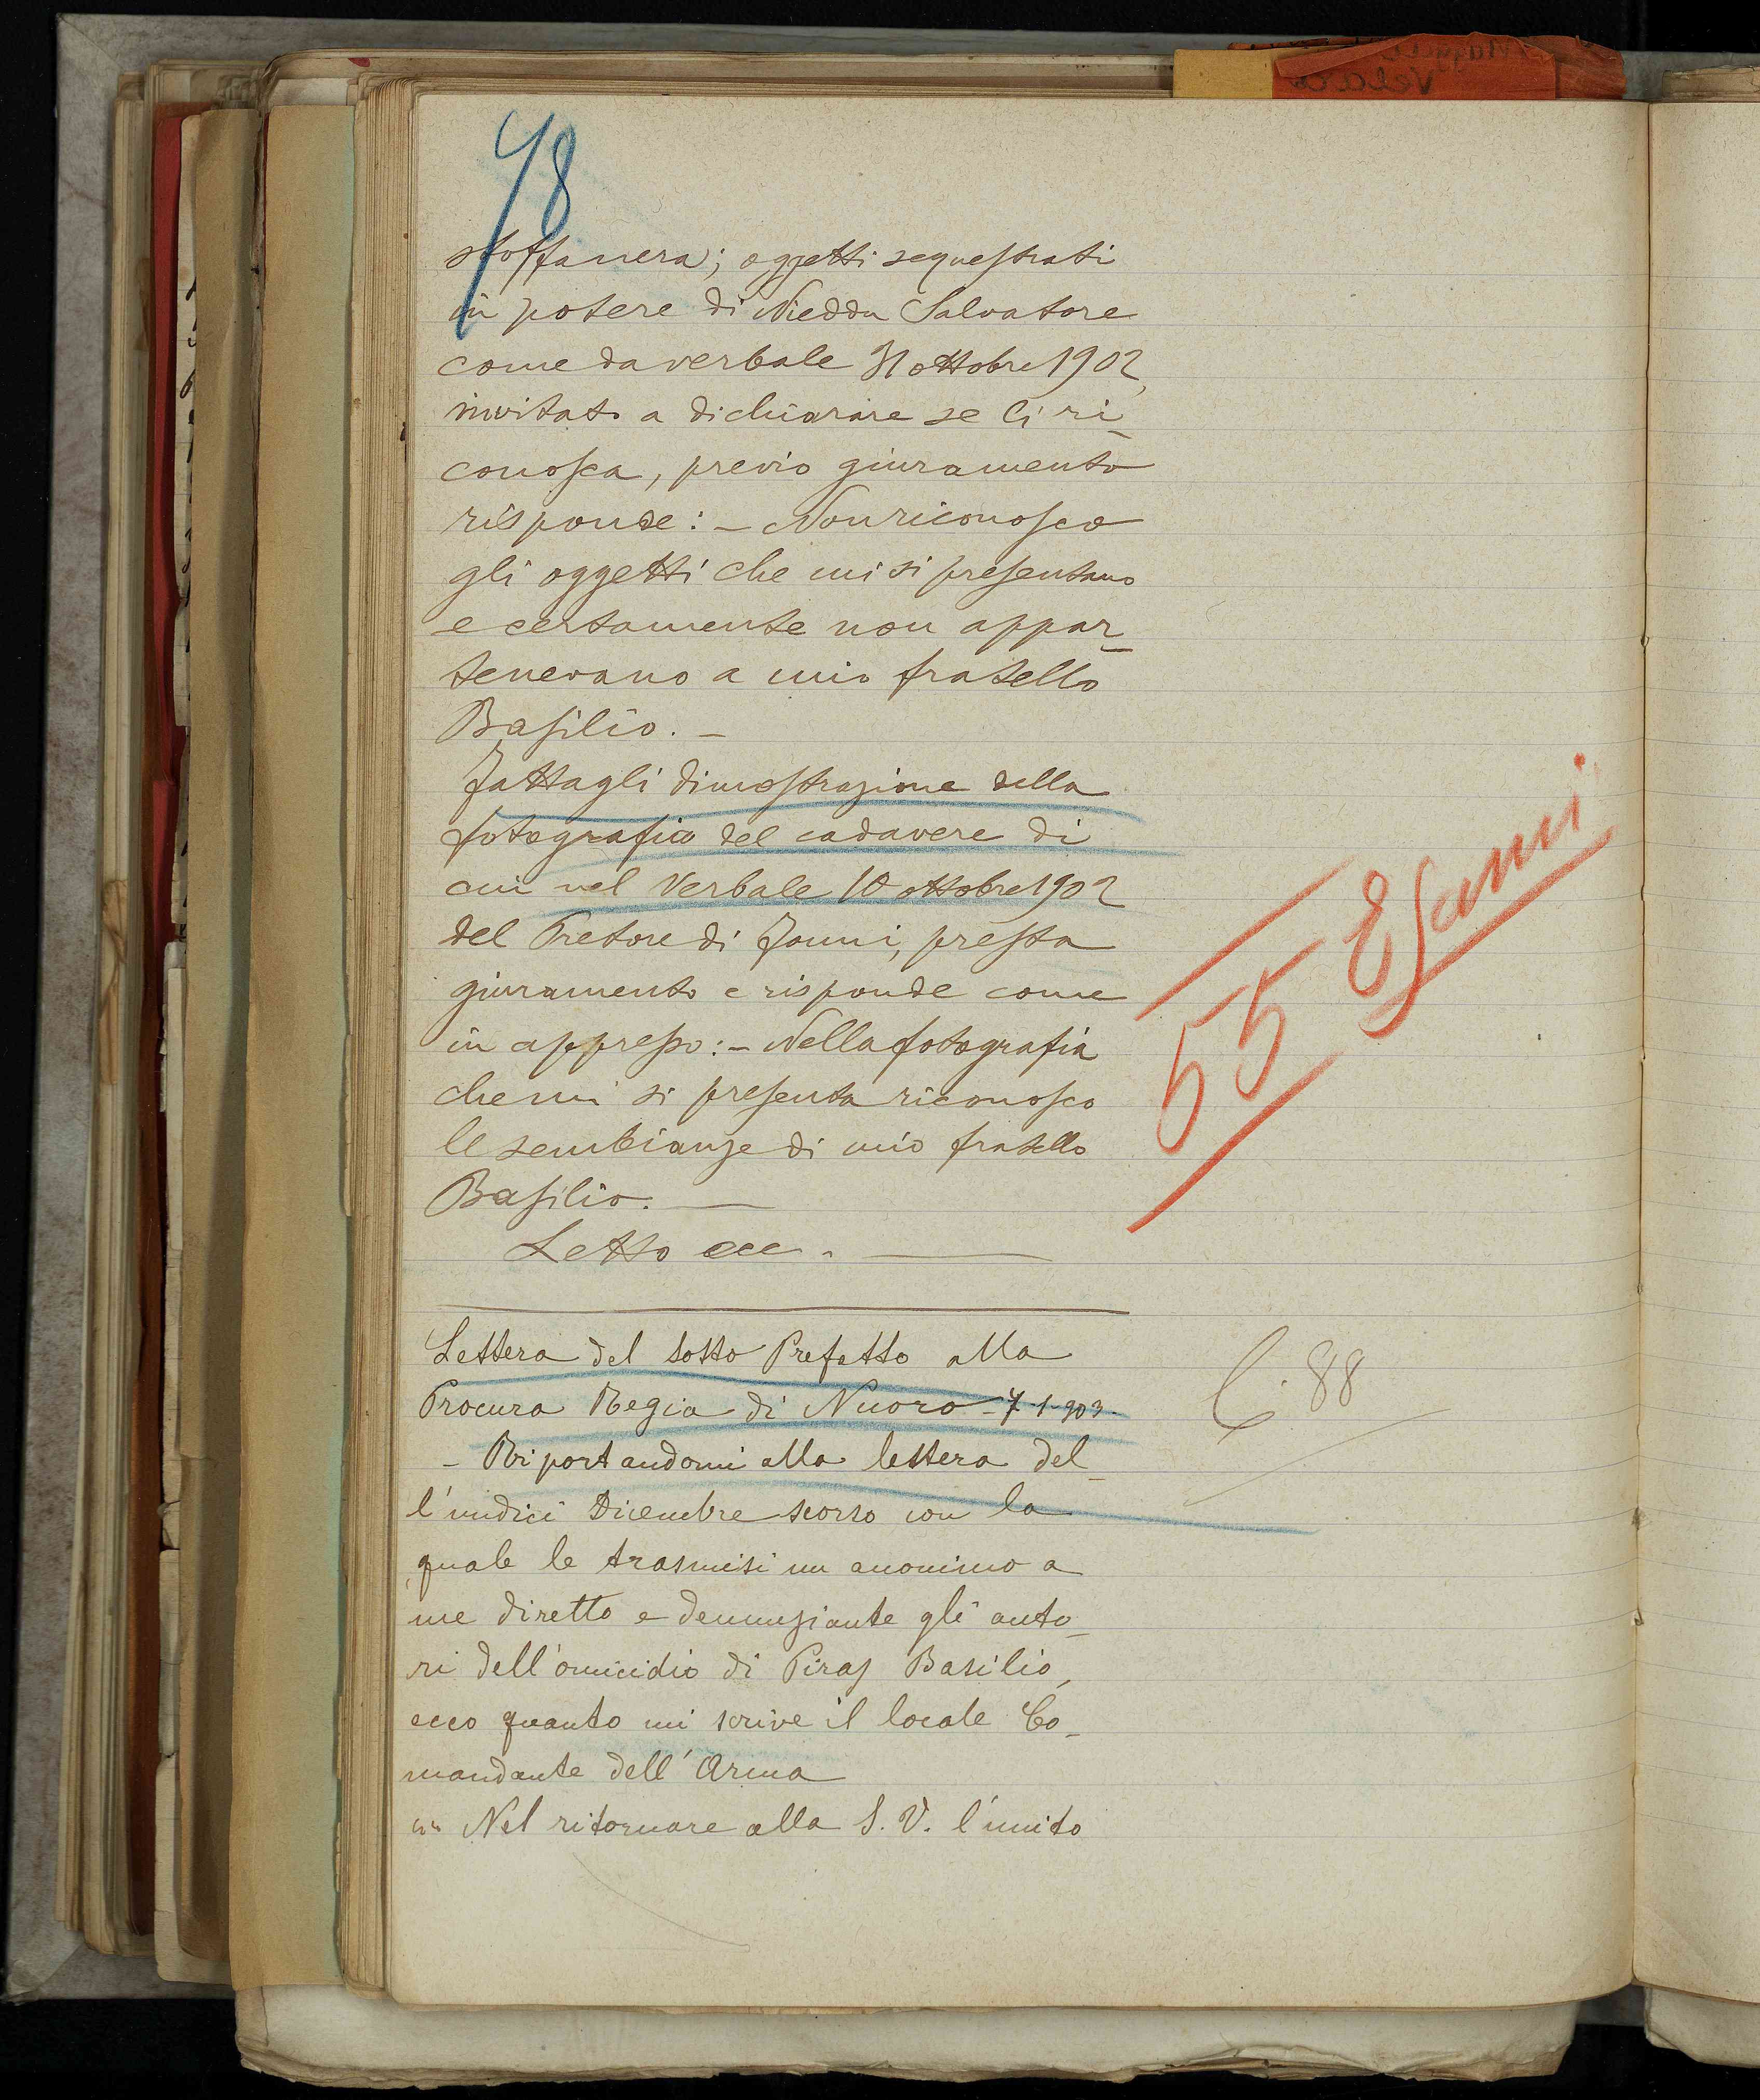 48
stoffa nera; oggetti sequestrati
in potere di Nieddu Salvatore
come da verbale 31 ottobre 1902,
invitato a dichiarare se li ri-
conosca, previo giuramento
risponde: - Non riconosco
gli oggetti che mi si presentano
e certamente non appar-
tenevano a mio fratello
Basilio. -
Fattagli dimostrazione della
fotografia del cadavere di
cui nel Verbale 10 ottobre 1902
del Pretore di Fonni, presta
giuramento e risponde come
in appresso: - Nella fotografia
che mi si presenta riconosco
le sembianze di mio fratello
Basilio. —
Letto ecc. —
55 Esami
Lettera del sotto Prefetto alla
Procura Regia di Nuoro - 7-1-903.
C. 88
- Riportandomi alla lettera del-
l'undici Dicembre scorso con la
quale le trasmisi un anonimo a
me diretto e denunziante gli auto-
ri dell'omicidio di Piras Basilio,
ecco quanto mi scrive il locale Co-
mandante dell'Arma
"" Nel ritornare alla S. V. l'unito